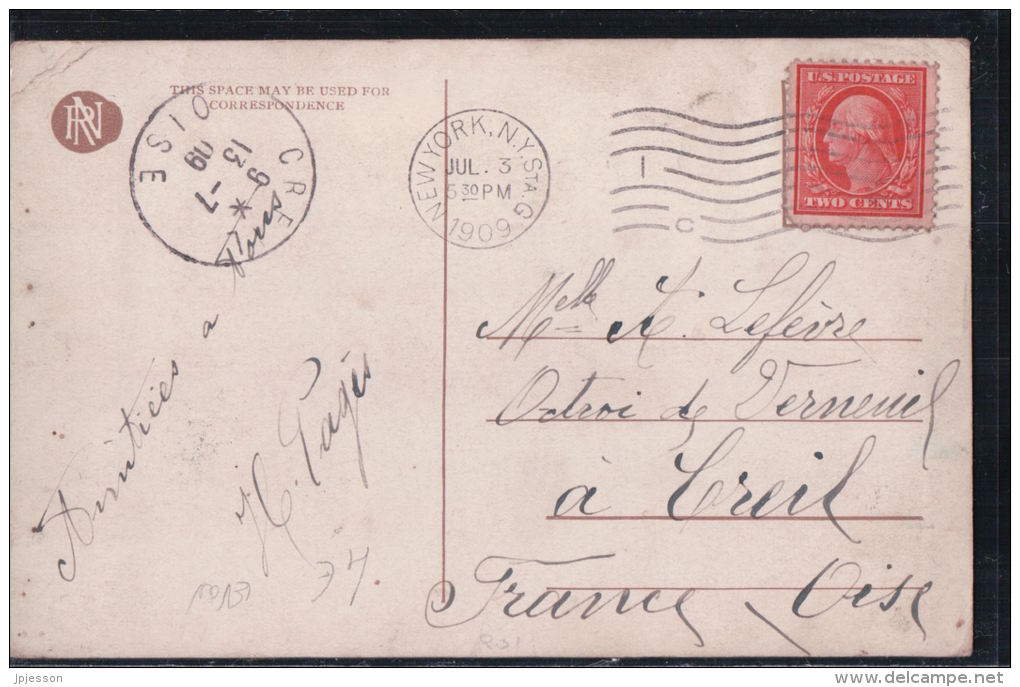 THIS SPACE MAY BE USED FOR
CORRESPONDENCE
CREIL
OISE
13 9 -7
09
NEW YORK, N.Y. STA.G.
JUL. 3
5 30 PM
1909
1
C
U.S. POSTAGE
TWO CENTS
Melle A. Lefèvre
Octroi de Verneuil
à Creil
France Oise
Amitiées a tous
H. Pagès
jpjesson
www.delcampe.net